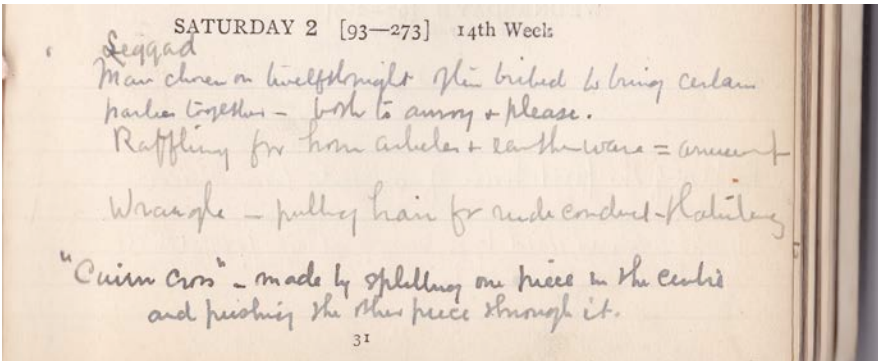 SATURDAY 2 [93—273] 14th Week
Seggad
Man chosen on twelfthnight often bribed to bring certain
parties together – both to annoy & please.
Raffling for horn articles & earthenware = amusement
Wrangle – pulling hair for rude conduct –
"Cuirn Cross" – made by splitting one piece in the centre
and pushing the other piece through it.
31